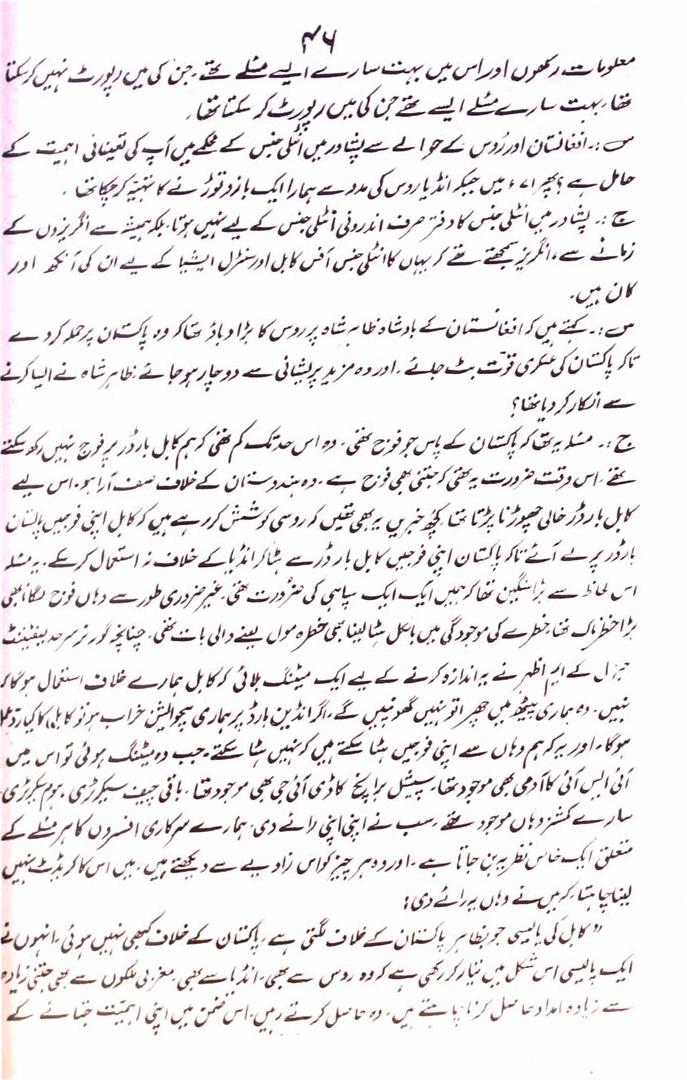 ۴۶
معلومات رکھوں اور اس میں بہت سارے ایسے مسئلے تھے۔ جن کی میں رپورٹ نہیں کرسکتا
تھا۔ بہت سارے مسئلے ایسے تھے جن کی میں رپورٹ کر سکتا تھا۔
س:۔ افغانستان اور رُوس کے حوالے سے پشاور میں انٹلی جنس کے محکمے میں آپ کی تعیناتی اہمیت کے
حامل ہے؟ پھر ۷۱ء میں جبکہ انڈیا روس کی مدد سے ہمارا ایک بازو توڑنے کا تہیّہ کرچکا تھا۔
ج:۔ پشاور میں انٹلی جنس کا دفتر صرف اندرونی انٹلی جنس کے لیے نہیں ہوتا، بلکہ ہمیشہ سے انگریزوں کے
زمانے سے، انگریز سمجھتے تھے کہ یہاں کا انٹلی جنس آفس کابل اور سنٹرل ایشیا کے لیے ان کی آنکھ اور
کان ہیں۔
س:۔ کہتے ہیں کہ افغانستان کے بادشاہ ظاہر شاہ پر روس کا بڑا دباؤ تھا کہ وہ پاکستان پر حملہ کر دے
تاکہ پاکستان کی عسکری قوّت بٹ جائے۔ اور وہ مزید پریشانی سے دوچار ہو جائے۔ ظاہر شاہ نے ایسا کرنے
سے انکار کر دیا تھا؟
ج:۔ مسئلہ یہ تھا کہ پاکستان کے پاس جو فوج تھی۔ وہ اس حد تک کم تھی کہ ہم کابل بارڈر پر فوج نہیں رکھ سکتے
تھے۔ اس وقت ضرورت یہ تھی کہ جتنی بھی فوج ہے۔ وہ ہندوستان کے خلاف صف آرا ہو۔ اس لیے
کابل بارڈر خالی چھوڑنا پڑتا تھا۔ کچھ خبریں یہ بھی تھیں کہ روسی کوشش کر رہے ہیں کہ کابل اپنی فوجیں پاکستان
بارڈر پر لے آئے تاکہ پاکستان اپنی فوجیں کابل بارڈر سے ہٹا کر انڈیا کے خلاف نہ استعمال کر سکے۔ یہ مسئلہ
اس لحاظ سے بڑا سنگین تھا کہ ہمیں ایک ایک سپاہی کی ضرورت تھی۔ غیر ضروری طور سے وہاں فوج لگانا بھی
بڑا خطرناک تھا۔ خطرے کی موجودگی میں بالکل ہٹا لینا بھی خطرہ مول لینے والی بات تھی۔ چنانچہ گورنر سرحد لیفٹیننٹ
جنرل کے ایم اظہر نے یہ اندازہ کرنے کے لیے ایک میٹنگ بلائی کہ کابل ہمارے خلاف استعمال ہو گا کہ
نہیں۔ وہ ہماری پیٹھ میں چھرا تو نہیں گھونپیں گے۔ اگر انڈین بارڈر پر ہماری سچوایشن خراب ہو تو کابل کا کیا ردِّ عمل
ہو گا۔ اور یہ کہ ہم وہاں سے اپنی فوجیں ہٹا سکتے ہیں کہ نہیں ہٹا سکتے۔ جب وہ میٹنگ ہوئی تو اس میں
آئی ایس آئی کا آدمی بھی موجود تھا۔ سپیشل برانچ کا ڈی آئی جی بھی موجود تھا۔ باقی چیف سیکرٹری۔ ہوم سیکرٹری،
سارے کمشنر وہاں موجود تھے۔ سب نے اپنی اپنی رائے دی۔ ہمارے سرکاری افسروں کا ہر مسئلے کے
متعلق ایک خاص نظریہ بن جاتا ہے۔ اور وہ ہر چیز کو اس زاویے سے دیکھتے ہیں۔ میں اس کا کریڈٹ نہیں
لینا چاہتا۔ کہ میں نے وہاں یہ رائے دی:
"کابل کی پالیسی جو بظاہر پاکستان کے خلاف لگتی ہے۔ پاکستان کے خلاف کبھی نہیں ہوئی۔ انہوں نے
ایک پالیسی اس شکل میں تیار کر رکھی ہے کہ وہ روس سے بھی۔ انڈیا سے بھی۔ مغربی ملکوں سے بھی جتنی زیادہ
سے زیادہ امداد حاصل کرنا چاہتے ہیں۔ وہ حاصل کرتے رہیں۔ اس ضمن میں اپنی اہمیّت جتانے کے